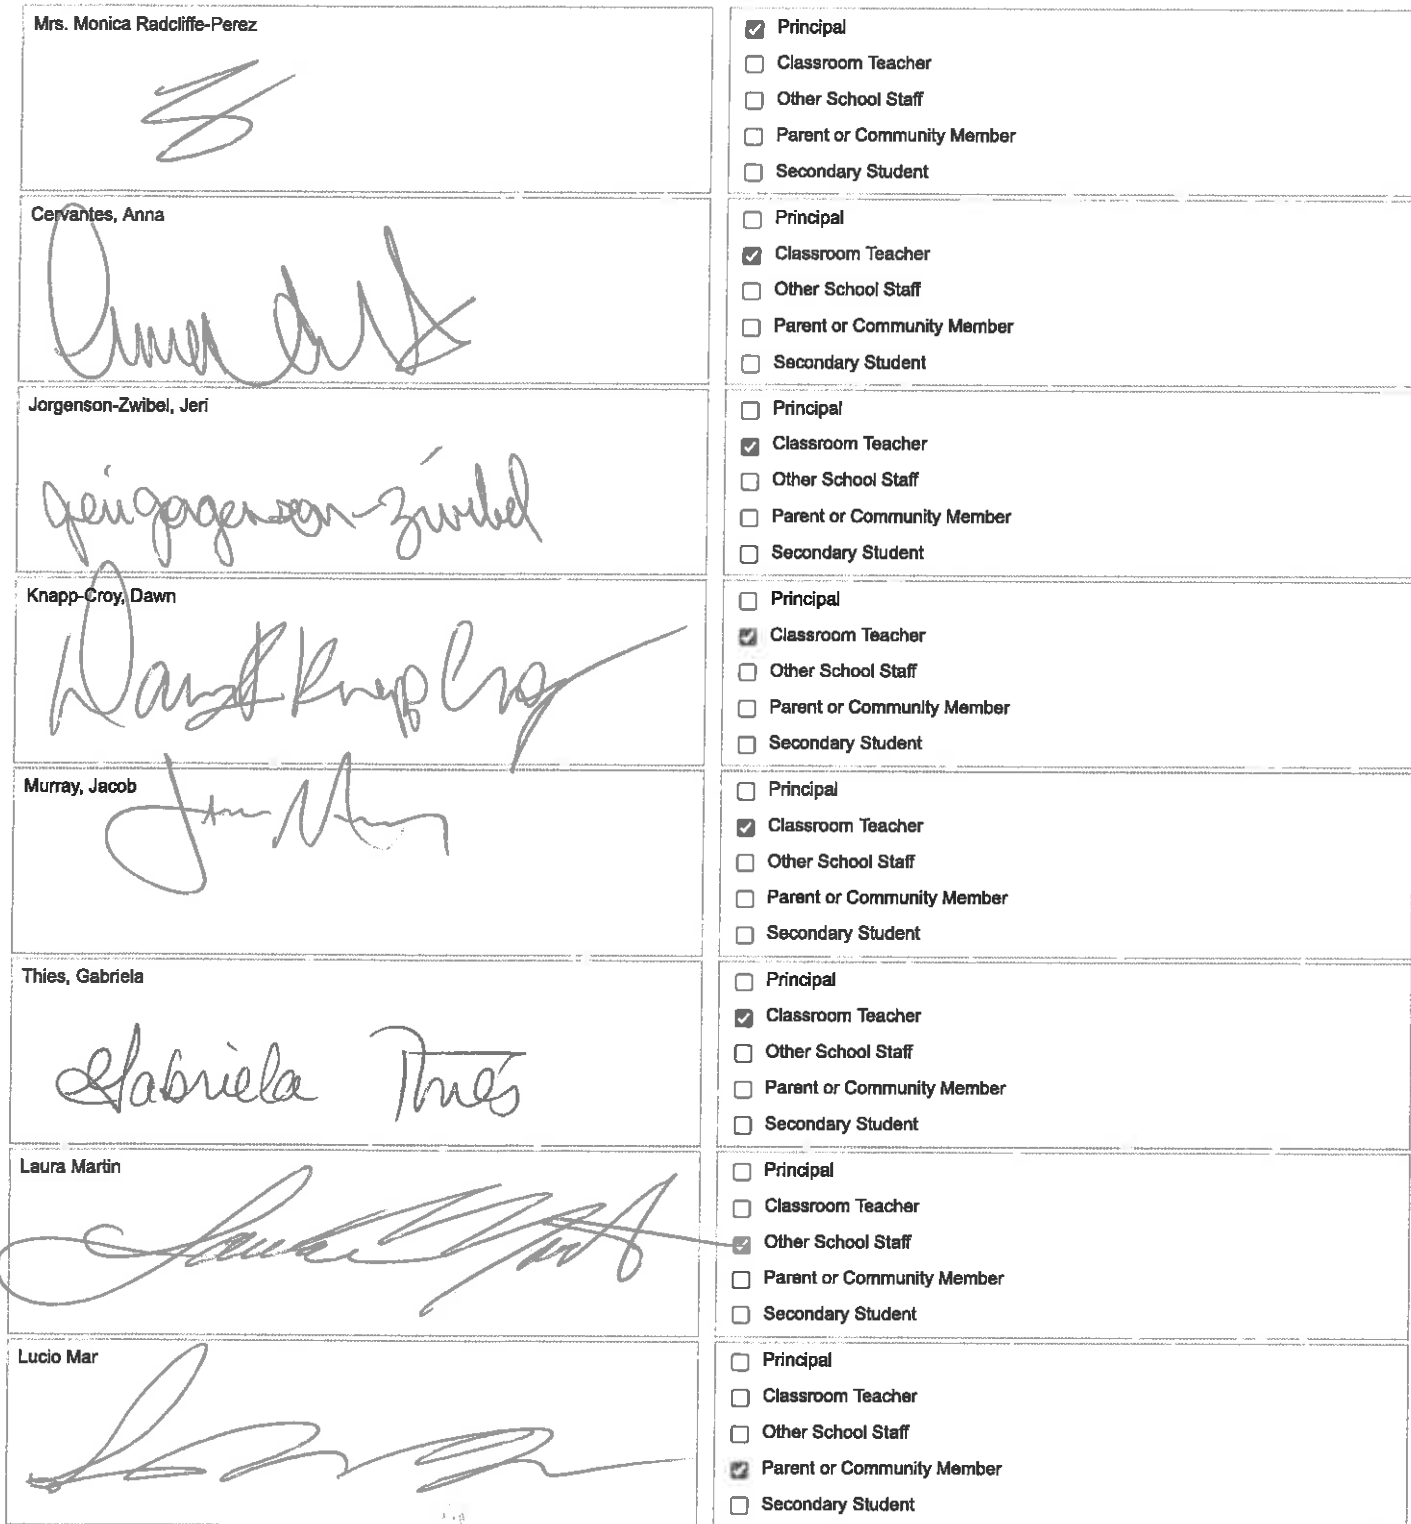 Mrs. Monica Radcliffe-Perez
Principal
Classroom Teacher
Other School Staff
Parent or Community Member
Secondary Student
Cervantes, Anna
Anna
Principal
Classroom Teacher
Other School Staff
Parent or Community Member
Secondary Student
Jorgenson-Zwibel, Jeri
Jeri Jorgenson-Zwibel
Principal
Classroom Teacher
Other School Staff
Parent or Community Member
Secondary Student
Knapp-Croy, Dawn
Dawn Knapp Croy
Principal
Classroom Teacher
Other School Staff
Parent or Community Member
Secondary Student
Murray, Jacob
Principal
Classroom Teacher
Other School Staff
Parent or Community Member
Secondary Student
Thies, Gabriela
Gabriela Thies
Principal
Classroom Teacher
Other School Staff
Parent or Community Member
Secondary Student
Laura Martin
Principal
Classroom Teacher
Other School Staff
Parent or Community Member
Secondary Student
Lucio Mar
Principal
Classroom Teacher
Other School Staff
Parent or Community Member
Secondary Student